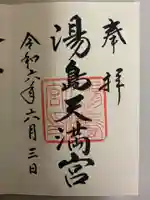 奉拝
湯島天満宮
令和六年六月三日